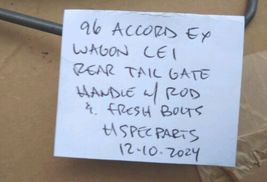 96 ACCORD EX
WAGON CE1
REAR TAIL GATE
HANDLE W/ ROD
& FRESH BOLTS
HSPECPARTS
12-10-2024